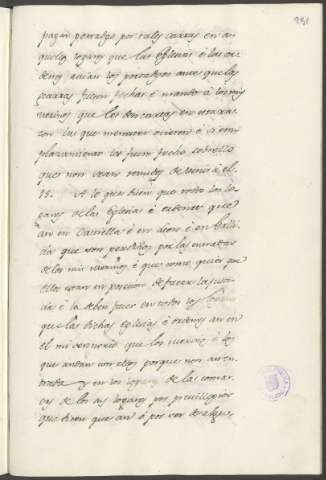 251
pagar portadgo por tales cartas en a
quelos logares que las Eglesias é las or
denes avian los portadgos ante que las
cartas fuesen fechas é mando á los mis
merinos que los den cartas en esta ra
zon las que menester ovieren é si em
plazamiento les fuere fecho sobrello
que non sean tenudos de venir á él.
15. A lo que dicen que todos los lo
gares de las Eglesias é ordenes que
an en Castiella é en Leon é en Galli
cia que son perdidos por las entradas
de los mis merinos é que como quier que
ellos estan en posesion de facer la justi
cia é la deben facer en todos los logares
que las dichas Eglesias é ordenes an en
el mi sennorio que los merinos é los
que andan con ellos porque non an en
trada y en los logares de las comar
cas de los sus logares por previllegios
que dicen que an ó por